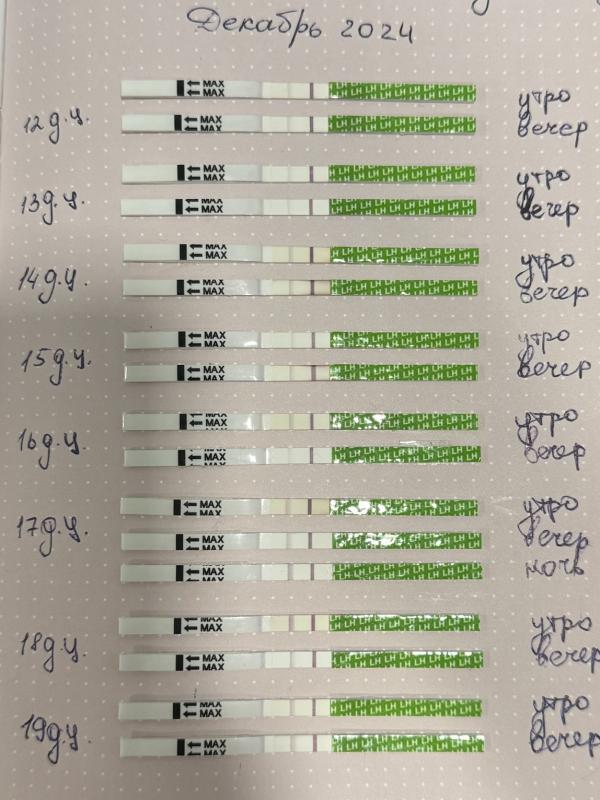 Декабрь 2024
MAX
MAX утро
12 д.ц. MAX
MAX вечер
MAX
MAX утро
13 д.ц. MAX вечер
MAX
MAX утро
14 д.ц. MAX
MAX вечер
MAX утро
15 д.ц. MAX вечер
MAX
MAX утро
16 д.ц. MAX
MAX вечер
MAX
MAX утро
17 д.ц. MAX вечер
MAX
MAX ночь
MAX
MAX утро
18 д.ц. MAX
MAX вечер
MAX
MAX утро
19 д.ц. MAX
MAX вечер